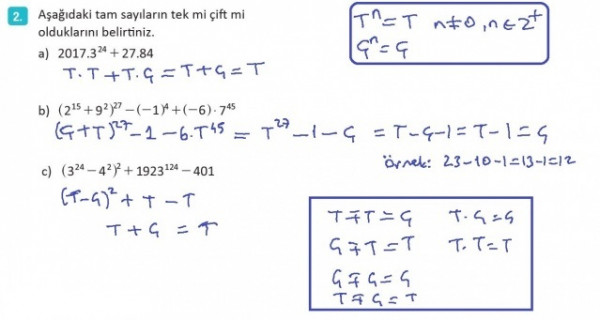 2. Aşağıdaki tam sayıların tek mi çift mi
olduklarını belirtiniz.
Tⁿ = T n≠0, n∈Z⁺
Çⁿ = Ç
a) 2017.3²⁴ + 27.84
T.T + T.Ç = T + Ç = T
b) (2¹⁵ + 9²)²⁷ – (–1)⁴ + (–6) · 7⁴⁵
(Ç+T)²⁷ – 1 – 6.T⁴⁵ = T²⁷ – 1 – Ç = T – Ç – 1 = T – 1 = Ç
Örnek: 23 – 10 – 1 = 13 – 1 = 12
c) (3²⁴ – 4²)² + 1923¹²⁴ – 401
(T – Ç)² + T – T
T + Ç = T
T∓T = Ç T.Ç = Ç
Ç∓T = T T.T = T
Ç∓Ç = Ç
T∓Ç = T